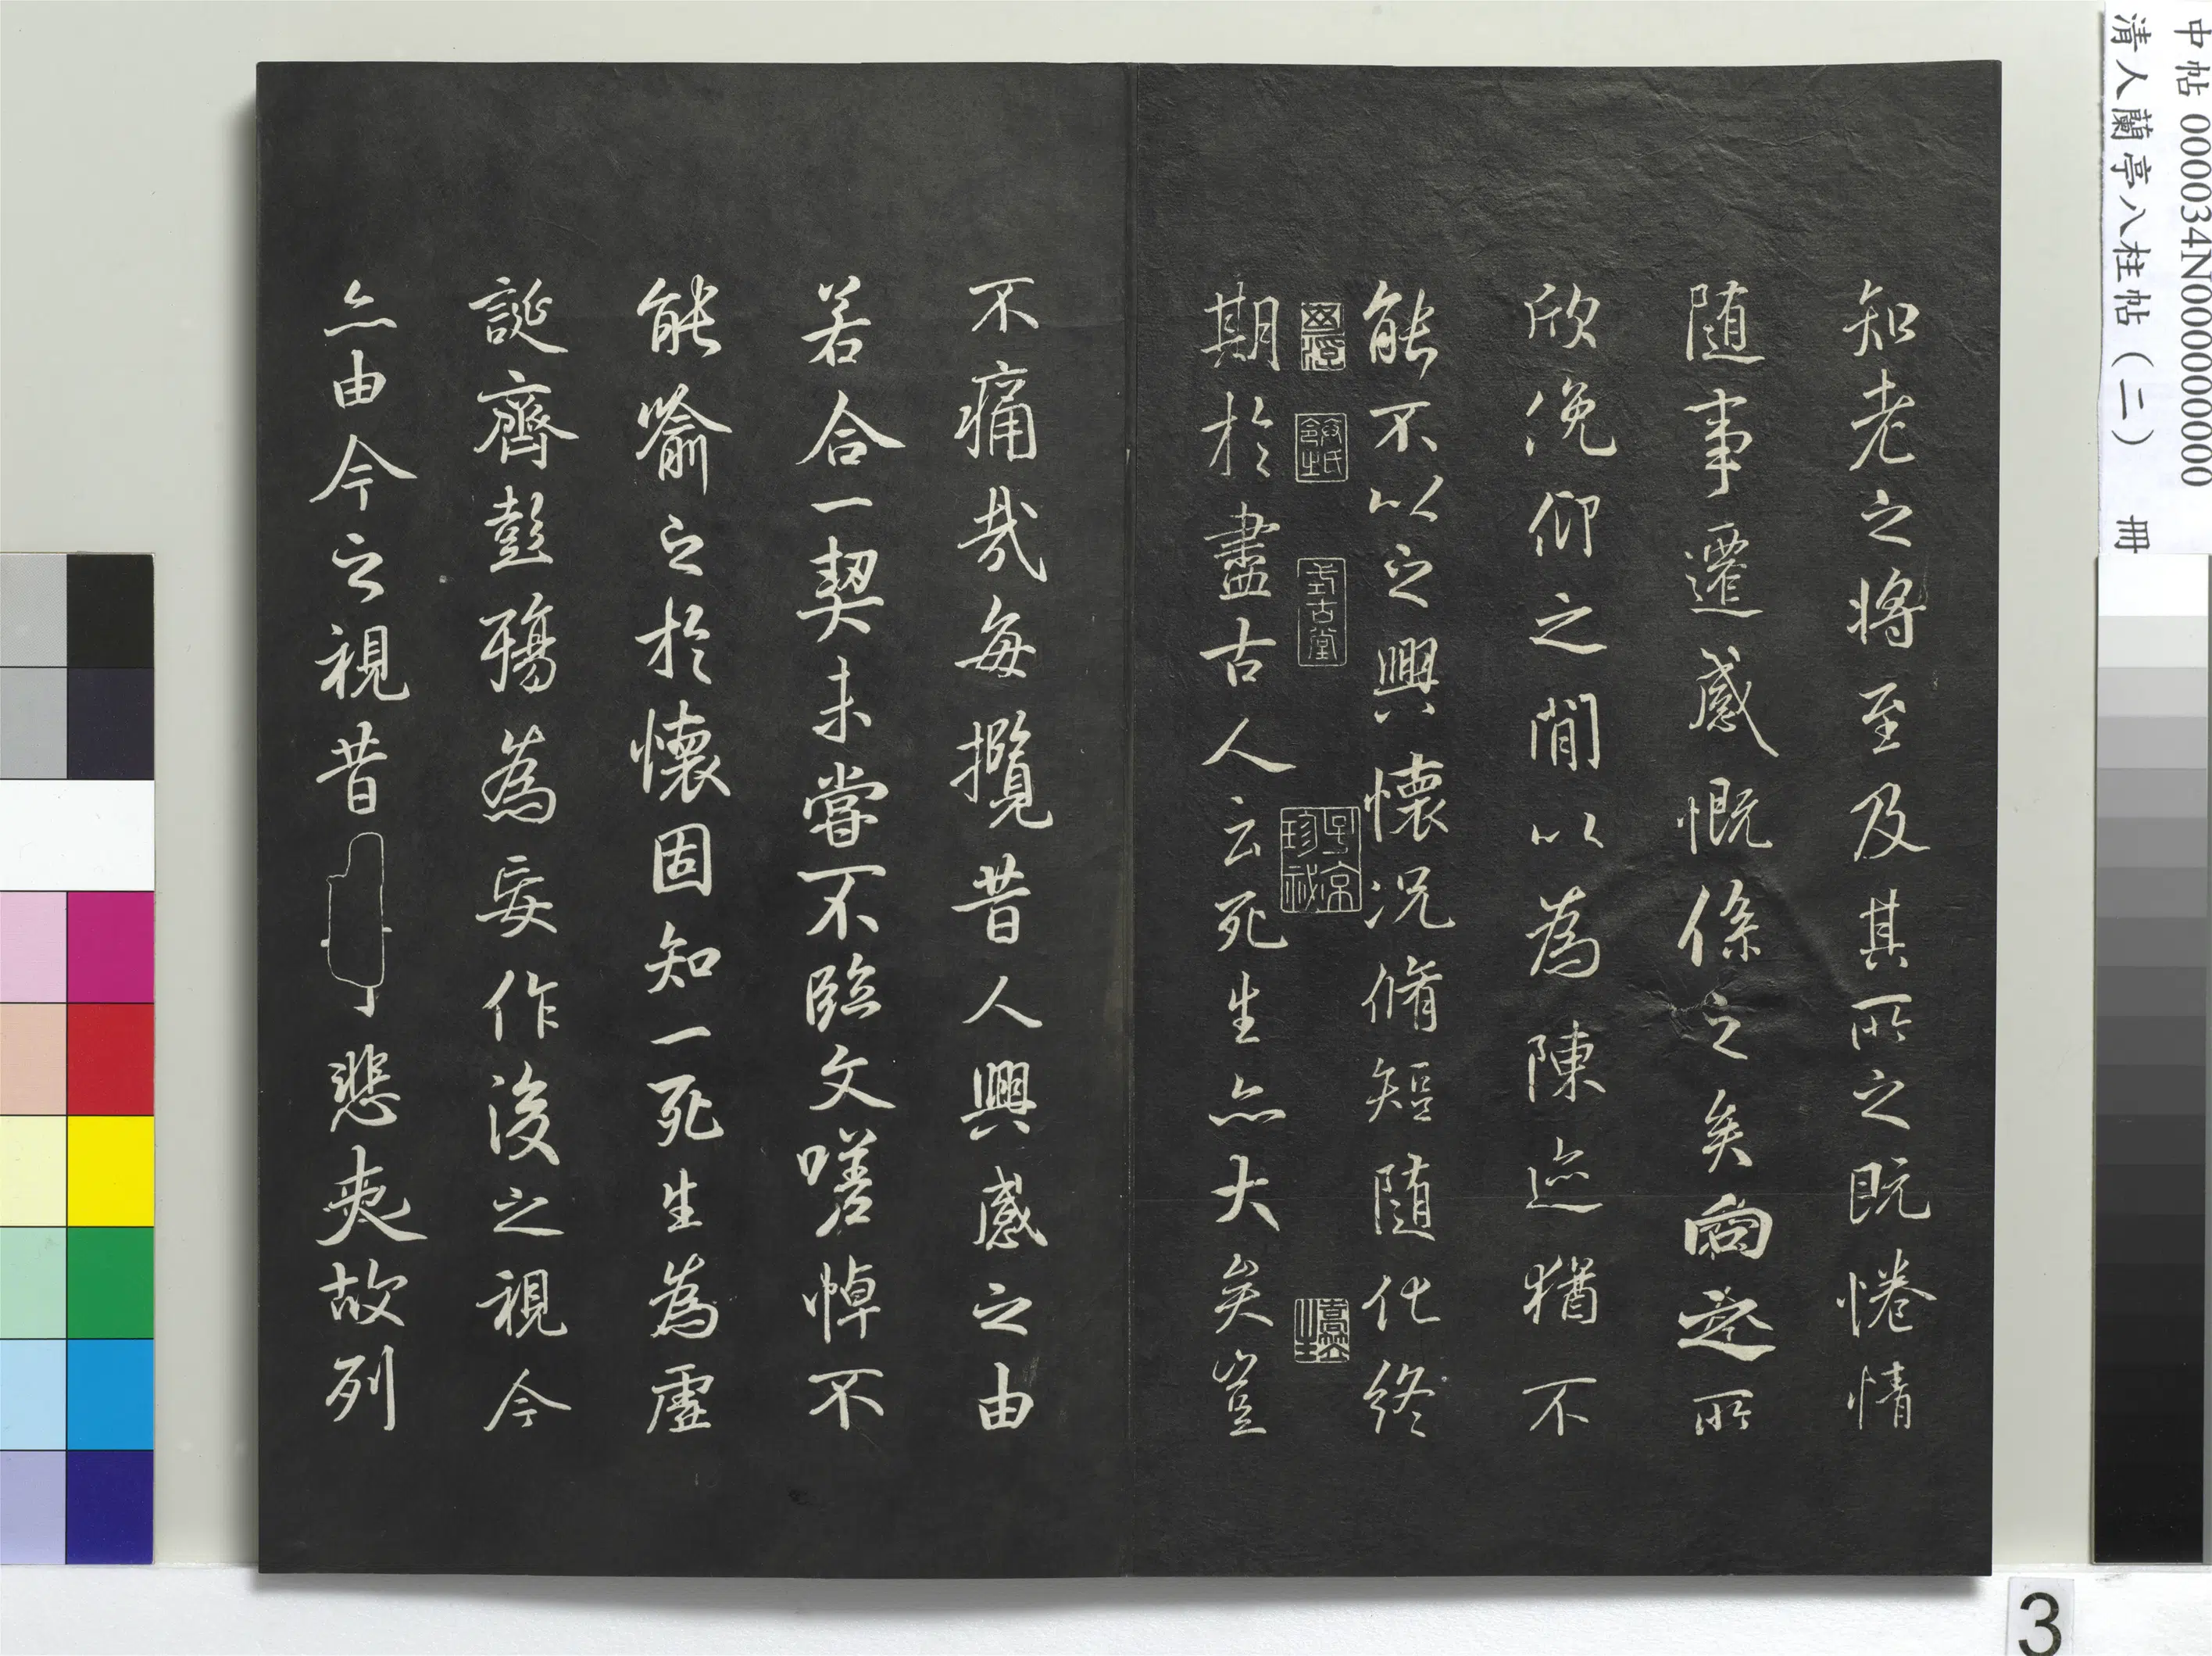 知老之將至及其所之既惓情
随事遷感慨係之矣向之所
欣俛仰之閒以為陳迹猶不
能不以之興懷况脩短随化終
期於盡古人云死生亦大矣豈
不痛哉每攬昔人興感之由
若合一契未嘗不臨文嗟悼不
能喻之於懷固知一死生為虛
誕齊彭殤為妄作後之視今
亦由今之視昔
悲夫故列
子京珍祕
中帖 000034N000000000
清人蘭亭八柱帖（二） 冊
3